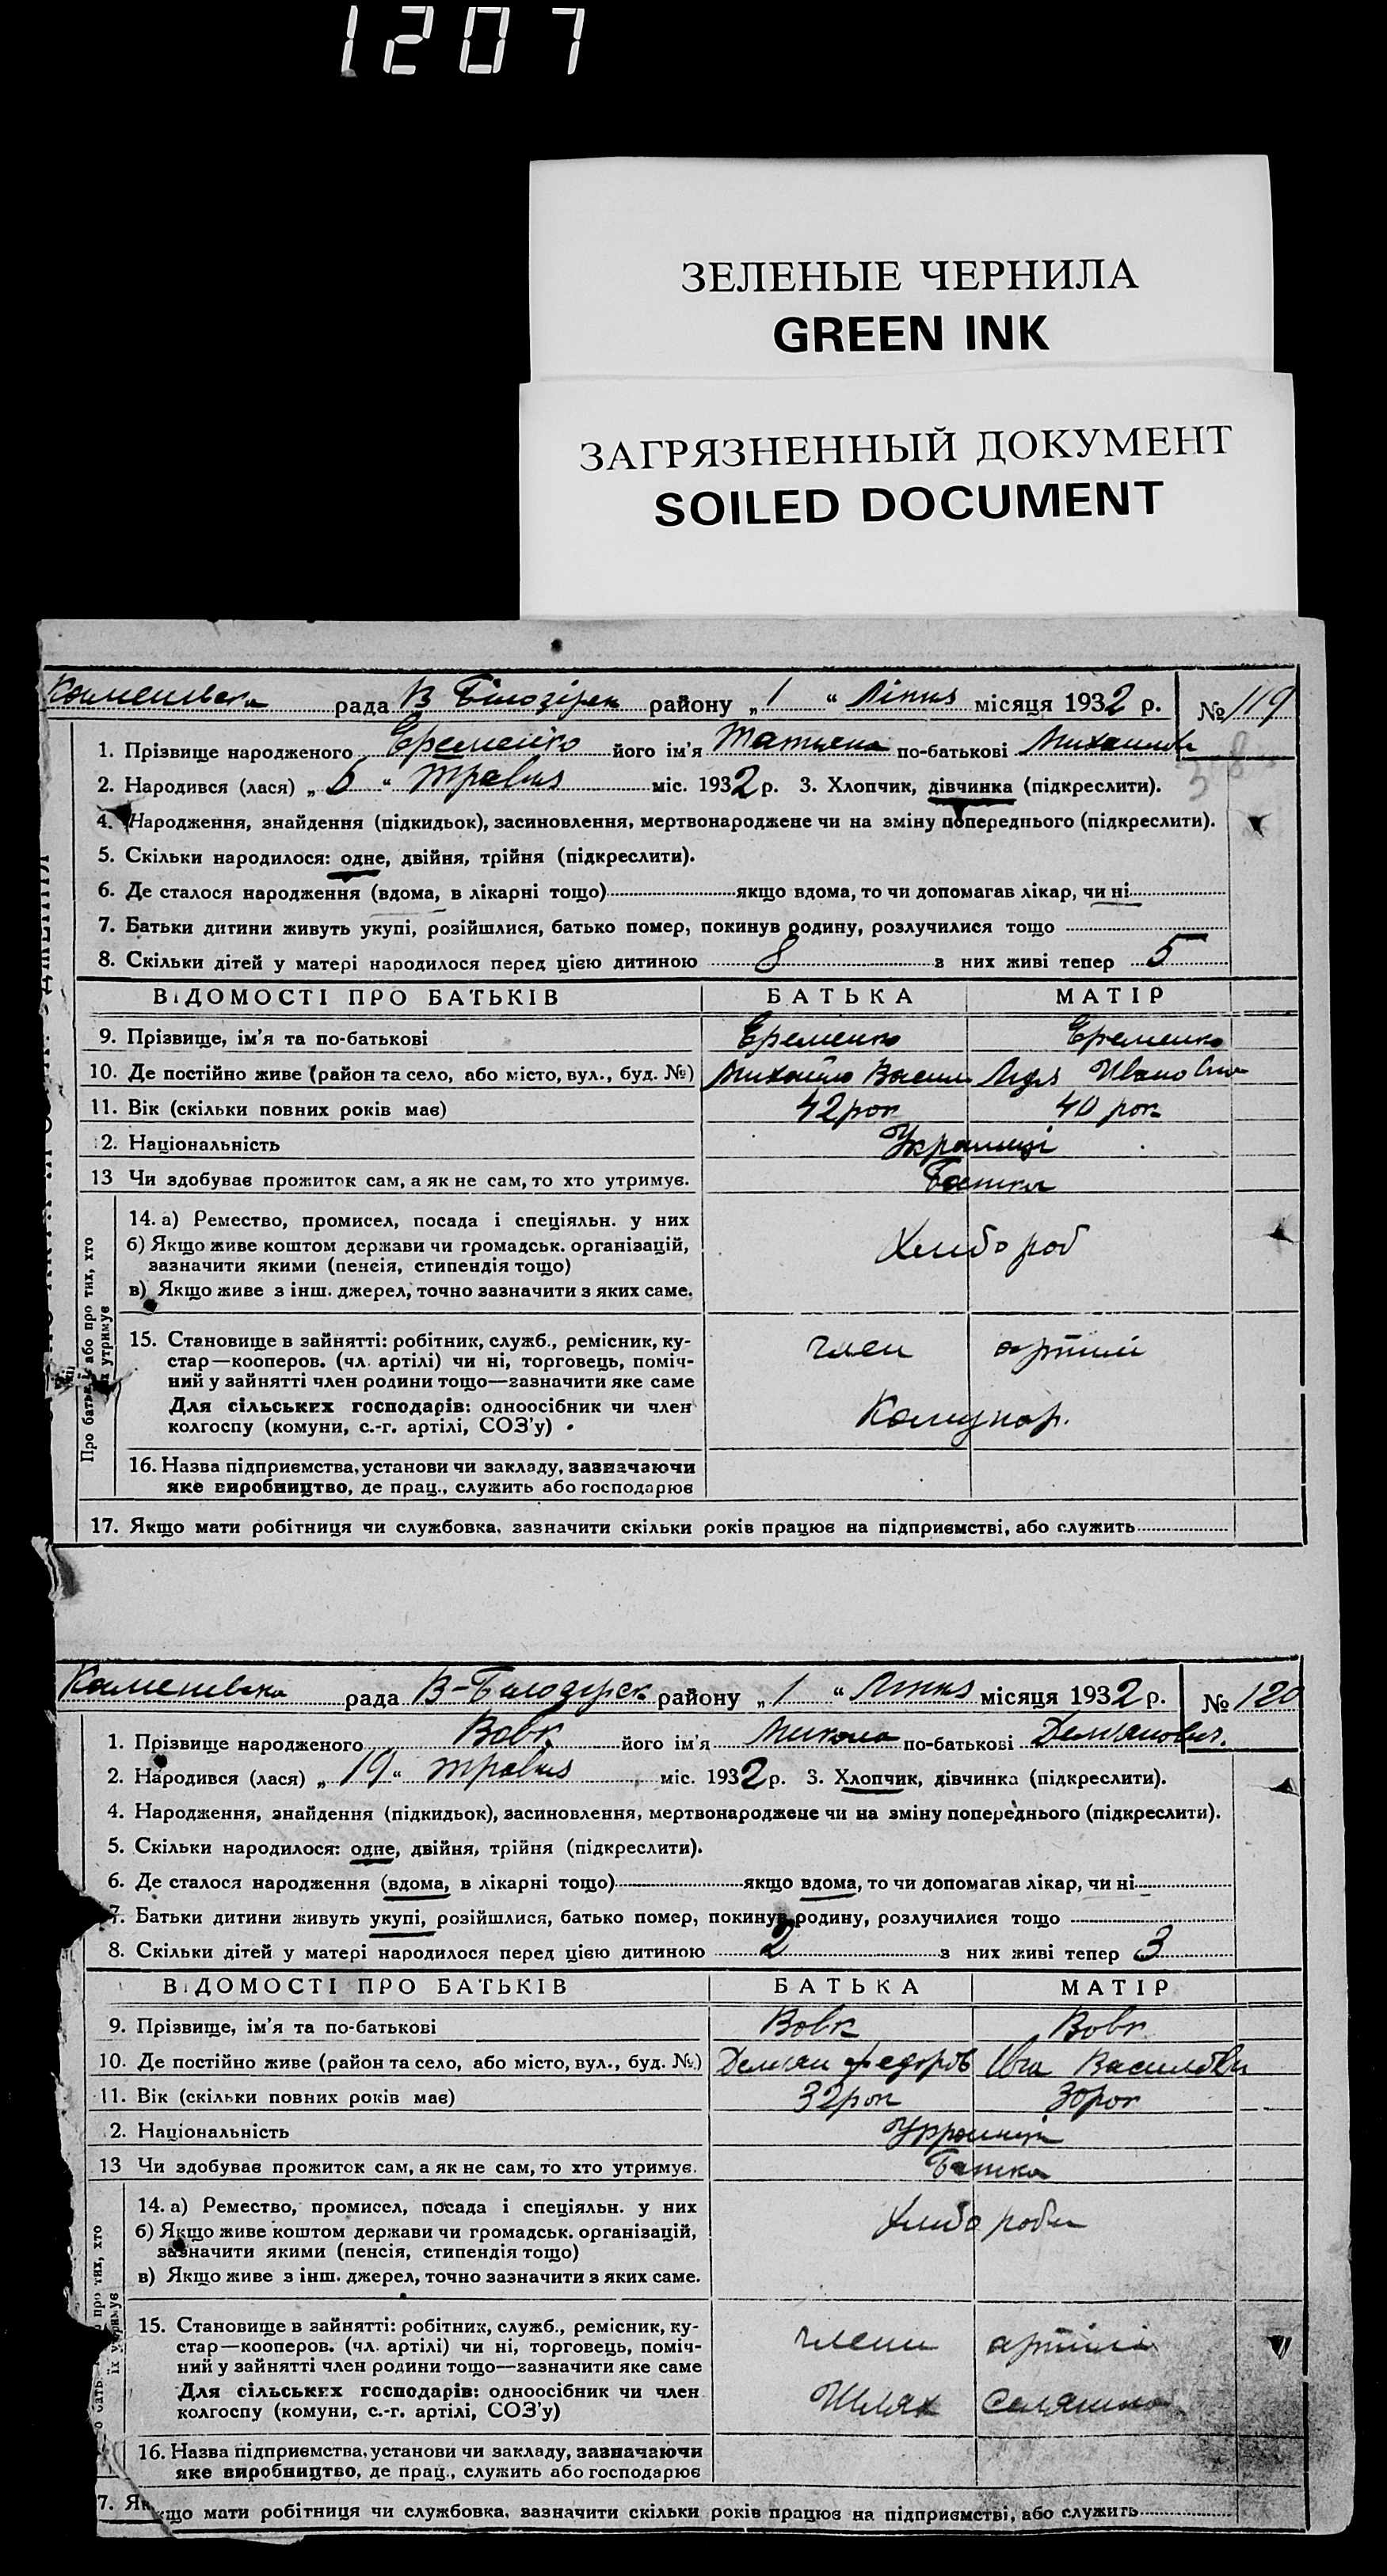 1207
ЗЕЛЕНЫЕ ЧЕРНИЛА
GREEN INK
ЗАГРЯЗНЕННЫЙ ДОКУМЕНТ
SOILED DOCUMENT
рада В Білозірск району „1“ Липня місяця 1932 р. № 119
1. Прізвище народженого Єременко його ім'я Татияна по-батькові
2. Народився (лася) „6“ травня міс. 1932 р. 3. Хлопчик, дівчинка (підкреслити).
4. Народження, знайдення (підкидьок), засиновлення, мертвонароджене чи на зміну попереднього (підкреслити).
5. Скільки народилося: одне, двійня, трійня (підкреслити).
6. Де сталося народження (вдома, в лікарні тощо) якщо вдома, то чи допомагав лікар, чи ні
7. Батьки дитини живуть укупі, розійшлися, батько помер, покинув родину, розлучилися тощо
8. Скільки дітей у матері народилося перед цією дитиною 8 з них живі тепер 5
ВІДОМОСТІ ПРО БАТЬКІВ БАТЬКА МАТІР
9. Прізвище, ім'я та по-батькові Єременко Єременко
10. Де постійно живе (район та село, або місто, вул., буд. №) Михайло Васил
11. Вік (скільки повних років має) 42 рок 40 рок
2. Національність Українці
13 Чи здобуває прожиток сам, а як не сам, то хто утримує. Батька
Про батьків або про тих, хто їх утримує
14. а) Ремество, промисел, посада і спеціяльн. у них
б) Якщо живе коштом держави чи громадськ. організацій,
зазначити якими (пенсія, стипендія тощо)
Хлибороб
в) Якщо живе з інш. джерел, точно зазначити з яких саме.
15. Становище в зайнятті: робітник, служб., ремісник, ку-
стар—кооперов. (чл. артілі) чи ні, торговець, поміч- член артілі
ний у зайнятті член родини тощо—зазначити яке саме
Для сільських господарів: одноосібник чи член
колгоспу (комуни, с.-г. артілі, СОЗ'у)
16. Назва підприємства, установи чи закладу, зазначаючи
яке виробництво, де прац., служить або господарює
17. Якщо мати робітниця чи службовка, зазначити скільки років працює на підприємстві, або служить
рада В-Білозірск району „1“ Липня місяця 1932 р. № 120
1. Прізвище народженого Вовк його ім'я Микола по-батькові Демянович.
2. Народився (лася) „19“ травня міс. 1932 р. 3. Хлопчик, дівчинка (підкреслити).
4. Народження, знайдення (підкидьок), засиновлення, мертвонароджене чи на зміну попереднього (підкреслити).
5. Скільки народилося: одне, двійня, трійня (підкреслити).
6. Де сталося народження (вдома, в лікарні тощо) якщо вдома, то чи допомагав лікар, чи ні
7. Батьки дитини живуть укупі, розійшлися, батько помер, покинув родину, розлучилися тощо
8. Скільки дітей у матері народилося перед цією дитиною 2 з них живі тепер 3
ВІДОМОСТІ ПРО БАТЬКІВ БАТЬКА МАТІР
9. Прізвище, ім'я та по-батькові Вовк Вовк
10. Де постійно живе (район та село, або місто, вул., буд. №) Демян Федоров
11. Вік (скільки повних років має) 32 рок 30 рок
2. Національність Українці
13 Чи здобуває прожиток сам, а як не сам, то хто утримує. Батька
про тих, хто їх утримує
14. а) Ремество, промисел, посада і спеціяльн. у них
б) Якщо живе коштом держави чи громадськ. організацій, Хлибороби
зазначити якими (пенсія, стипендія тощо)
в) Якщо живе з інш. джерел, точно зазначити з яких саме.
15. Становище в зайнятті: робітник, служб., ремісник, ку-
стар—кооперов. (чл. артілі) чи ні, торговець, поміч- члени артілі
ний у зайнятті член родини тощо—зазначити яке саме
Для сільських господарів: одноосібник чи член Шлях Селянина
колгоспу (комуни, с.-г. артілі, СОЗ'у)
16. Назва підприємства, установи чи закладу, зазначаючи
яке виробництво, де прац., служить або господарює
7. Якщо мати робітниця чи службовка, зазначити скільки років працює на підприємстві, або служить